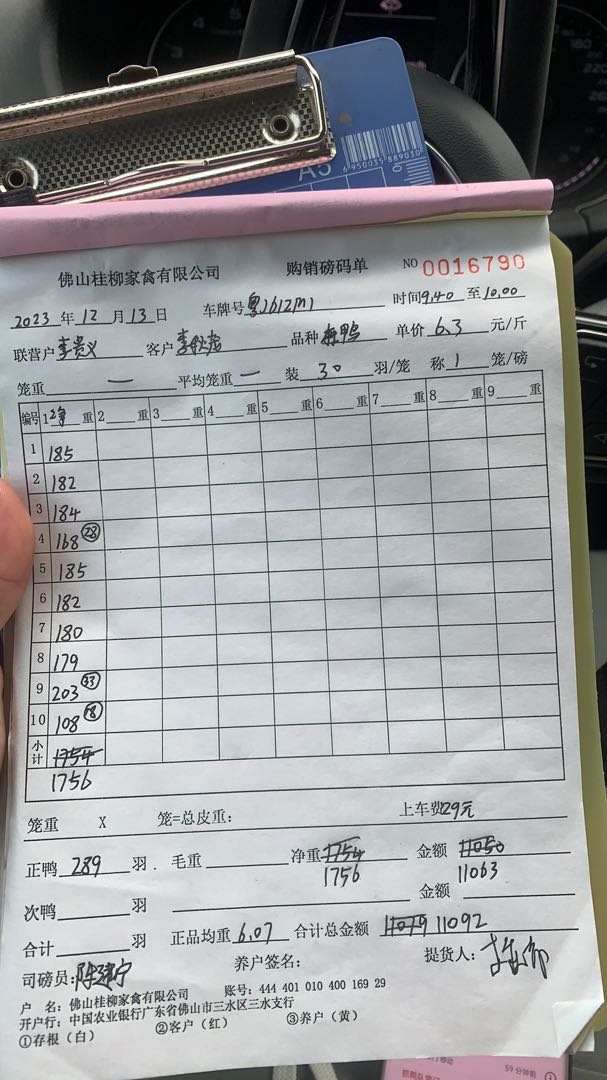 A5
6 950035 889030
佛山桂柳家禽有限公司 购销磅码单 NO 0016790
2023 年 12 月 13 日 车牌号 粤J612M1 时间 9.40 至 10.00
联营户 李贵义 客户 品种 麻鸭 单价 6.3 元/斤
笼重 — 平均笼重 — 装 30 羽/笼 称 1 笼/磅
编号 1 净 重 2 重 3 重 4 重 5 重 6 重 7 重 8 重 9 重
1 185
2 182
3 184
4 168 28
5 185
6 182
7 180
8 179
9 203 33
10 108 18
小计 1754
1756
笼重 X 笼=总皮重: 上车费 29元
正鸭 289 羽. 毛重 净重 1754 金额 11050
1756 11063
次鸭 羽 金额
合计 羽 正品均重 6.07 合计总金额 11079 11092
司磅员: 养户签名: 提货人:
户 名: 佛山桂柳家禽有限公司 账号: 444 401 010 400 169 29
开户行: 中国农业银行广东省佛山市三水区三水支行
①存根（白） ②客户（红） ③养户（黄）
59 分钟前